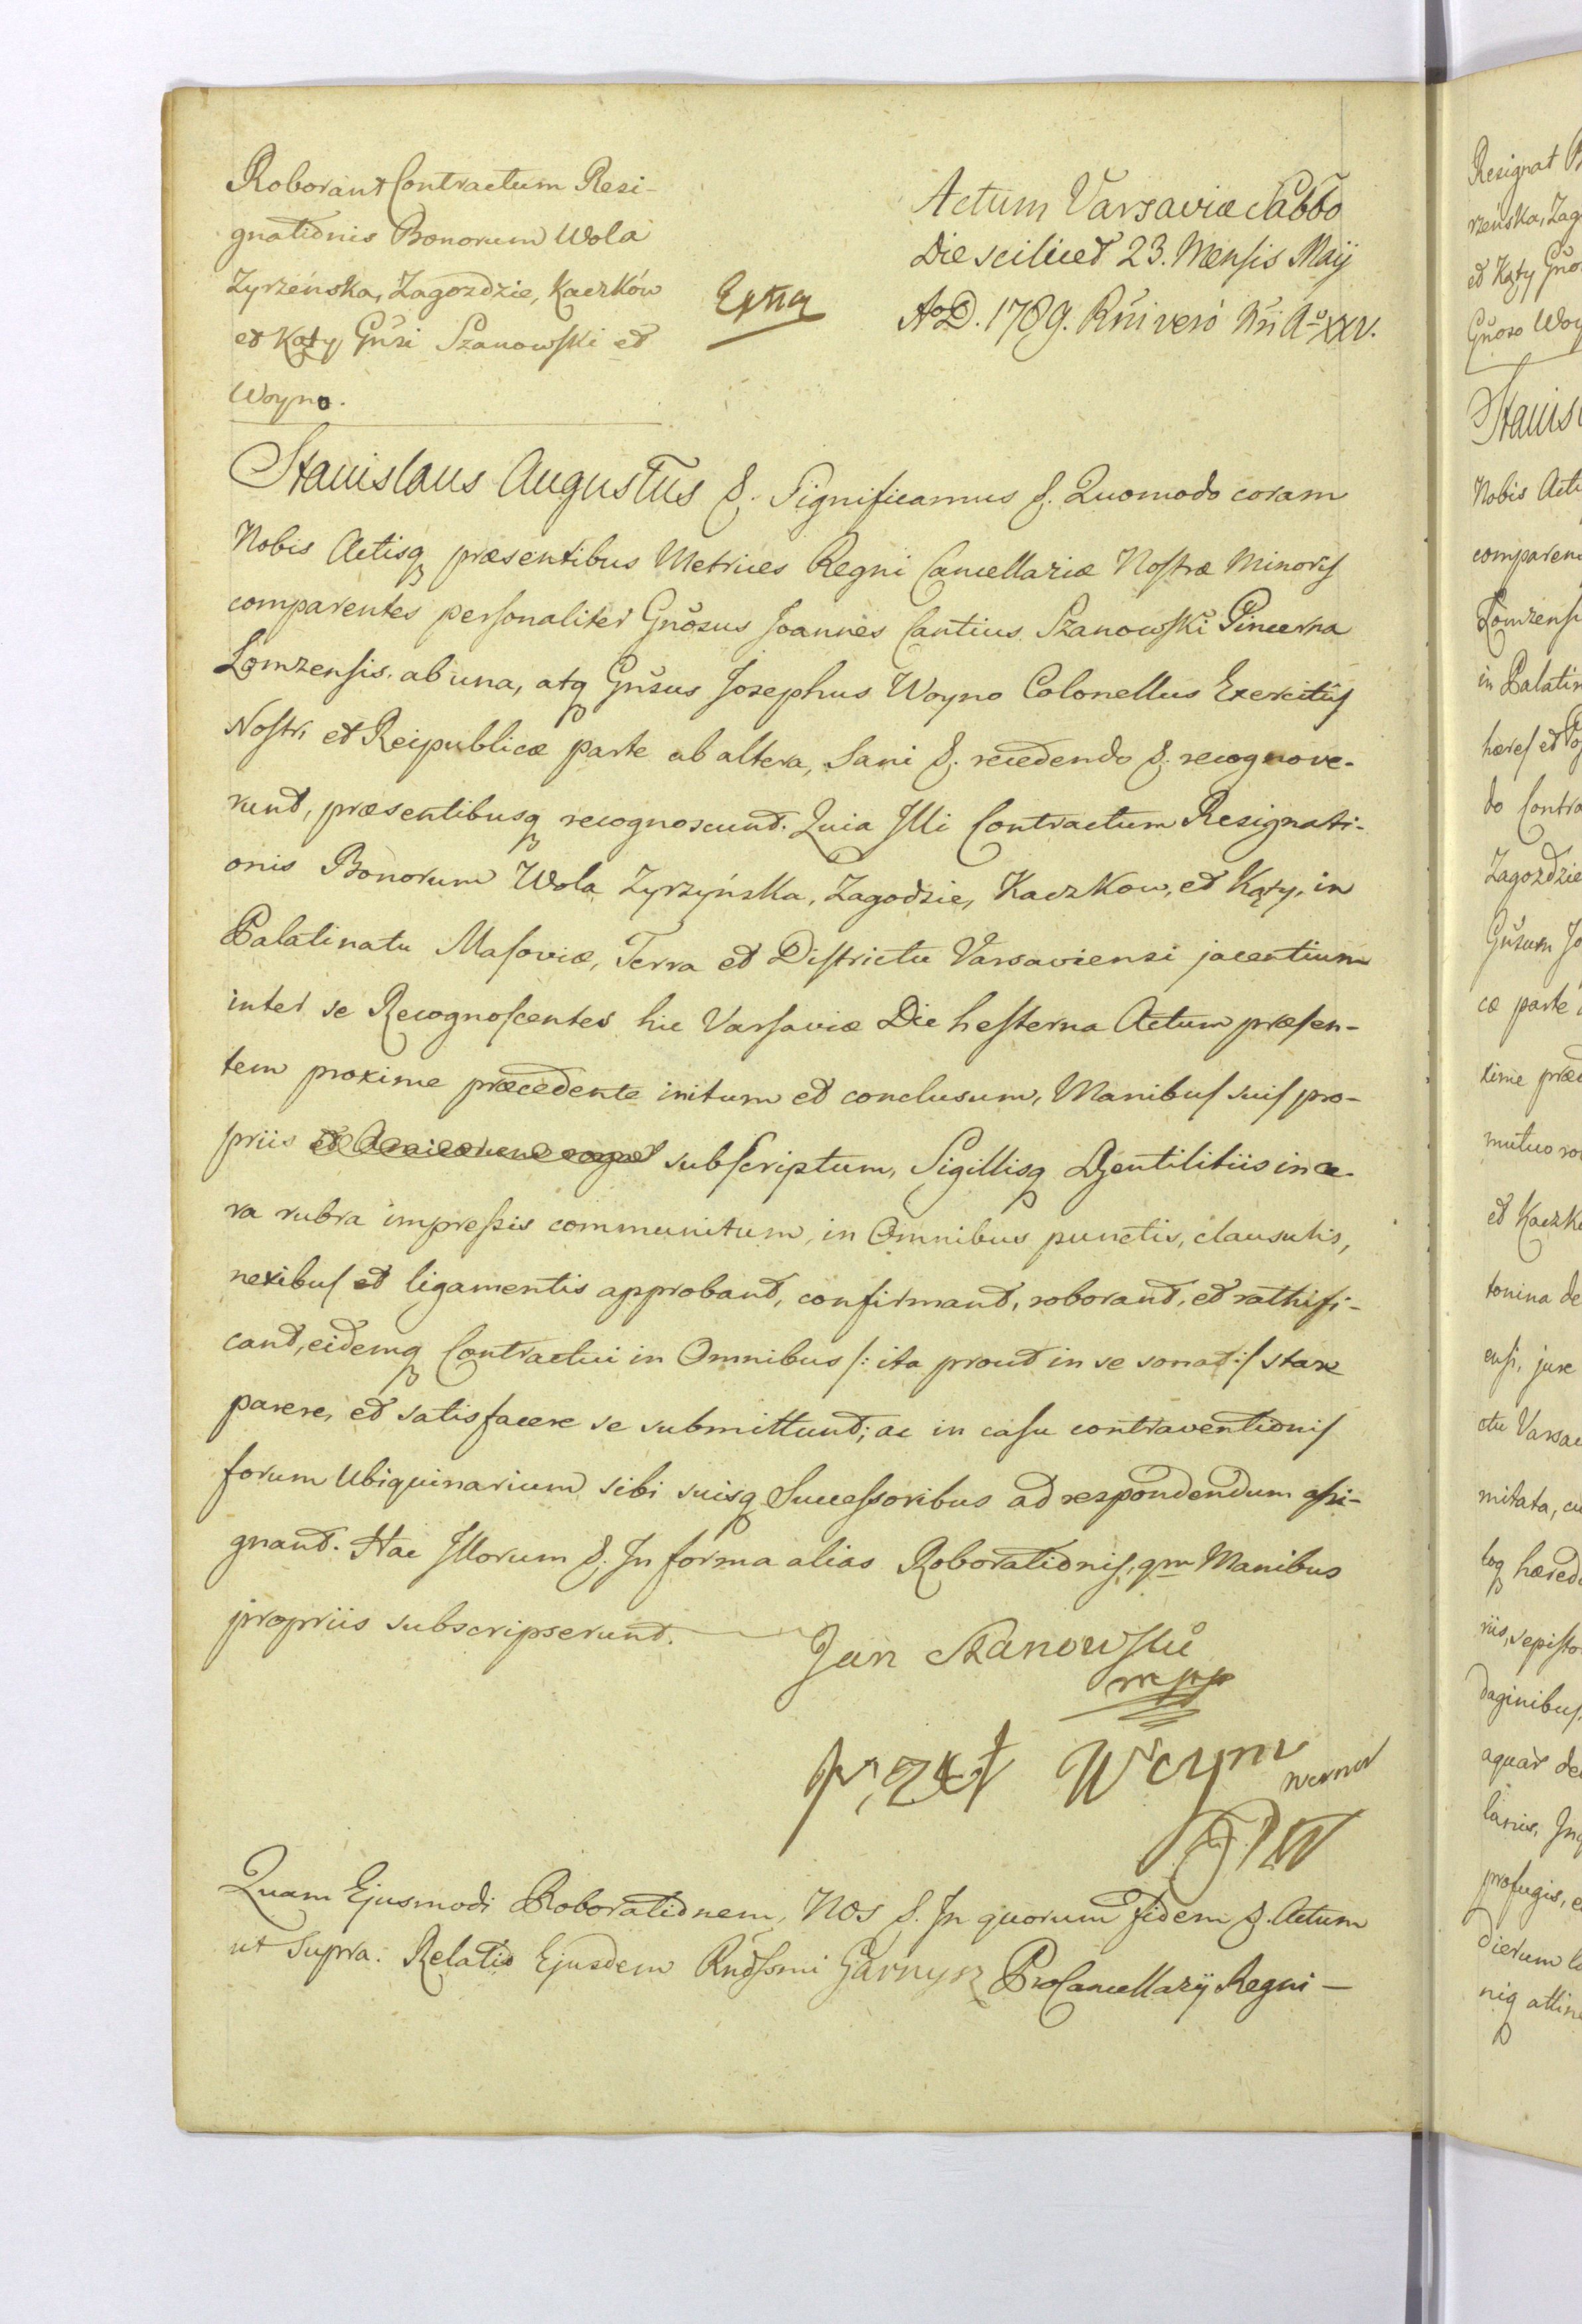 Roborant Contractum Resi-
gnationis Bonorum Wola
Zyrzeńska, Zagozdzie, Kaczków
et Kąty Gnsi Szanowski et
Woyno.
Extra
Actum Varsaviæ Sabbo
Die scilicet 23. Mensis Maij
AoD. 1789. Rni vero Nri Ao XXV.
Stanislaus Augustus &. Significamus &. Quomodo coram
Nobis Actisq præsentibus Metrices Regni Cancellariæ Nostræ Minoris
comparentes personaliter Gnosus Joannes Cantius Szanowski Pincerna
Lomzensis. ab una, atq Gnsus Josephus Woyno Colonellus Exercitus
Nostri et Reipublicæ parte ab altera, Sani &. recedendo &. recognove-
runt, præsentibusq recognoscunt. Quia Illi Contractum Resignati-
onis Bonorum Wola Zyrzyńska, Zagodzie, Kaczkow, et Kąty, in
Palatinatu Masoviæ, Terra et Districtu Varsaviensi jacentium
inter se Recognoscentes hic Varsaviæ Die hesterna Actum præsen-
tem proxime præcedente initum et conclusum, Manibus suis pro-
priis subscriptum, Sigillisq Gentilitiis in ce-
ra rubra impressis communitum, in Omnibus punctis, clausulis,
nexibus et ligamentis approbant, confirmant, roborant, et rathifi-
cant, eidemq Contractui in Omnibus /: ita prout in se sonat :/ stare
parere, et satisfacere se submittunt; ac in casu contraventionis
forum Ubiquinarium sibi suisq Successoribus ad respondendum assi-
gnant. Hac Illorum &. In forma alias Roborationis, qm Manibus
propriis subscripserunt.
Jan Szanowski
mpp
Józef Woyno
Quam Ejusmodi Roborationem, Nos &. In quorum fidem &. Actum
ut Supra. Relatio Ejusdem Rndssmi Garnysz ProCancellarij Regni —
Resignat
rzeńska, Zag
et Kąty Gno
Gnoso Woy
Stanis
Nobis Acti
comparen
Lomzensi
in Palatin
hæres et
do Contra
Zagozdzie
Gnsum Jo
cæ parte
xime præ
mutuo
et Kaczk
tonina de
ensi, jure
ctu Varsa
mitata, cu
toq hæred
riis,
daginibus
aquar de
profugis, e
dierum
niq attin